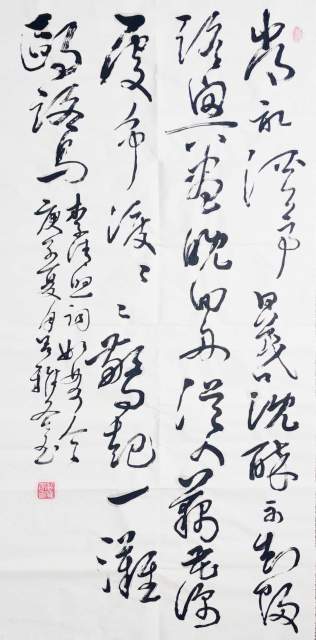 常記溪亭日暮沈醉不知歸
路興盡晚回舟誤入藕花深
處爭渡〻〻驚起一灘
鷗鷺
李清照詞如夢令
庚子夏月